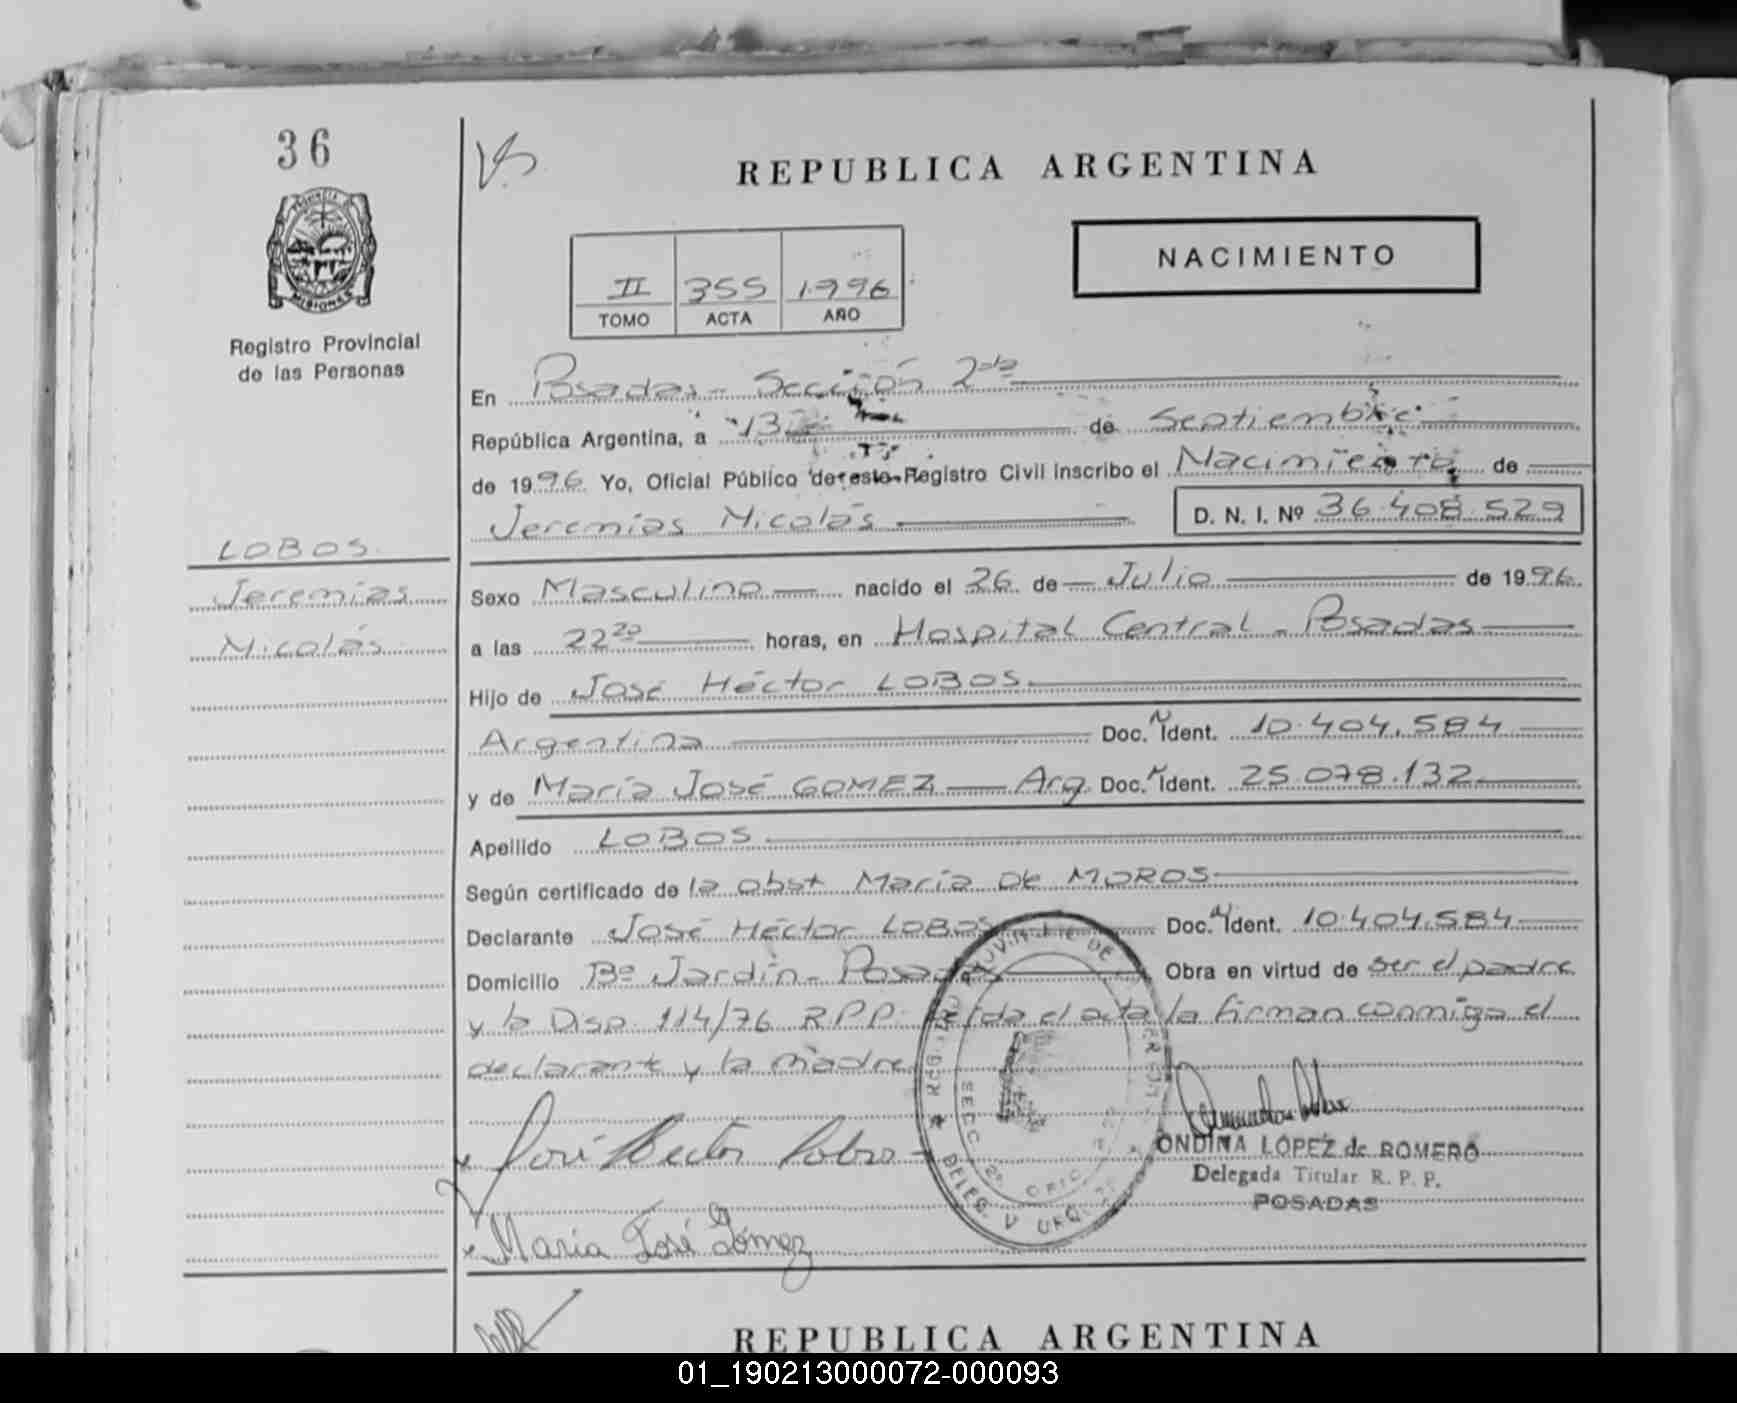 36
REPUBLICA ARGENTINA
PROVINCIA DE MISIONES
NACIMIENTO
II 355 1996
TOMO ACTA AÑO
Registro Provincial
de las Personas
En Posadas - Sección 2da
República Argentina, a 13 de Septiembre
de 1996 Yo, Oficial Público de este Registro Civil inscribo el Nacimiento de
Jeremías Nicolás D. N. I. Nº 36.408.529
LOBOS
Jeremías
Nicolás
Sexo Masculino nacido el 26 de Julio de 1996
a las 22 20 horas, en Hospital Central - Posadas
Hijo de José Héctor LOBOS
Argentina Doc. N Ident. 10.404.584
y de María José GOMEZ Arg. Doc. N Ident. 25.078.132
Apellido LOBOS
Según certificado de la obst María De MOROS
Declarante José Héctor LOBOS Doc. N Ident. 10.404.584
Domicilio Bº Jardín - Posadas Obra en virtud de ser el padre
y la Disp. 114/76 R.P.P. Leída el acta la firman conmigo el
declarante y la madre
José Hector Lobos
ONDINA LÓPEZ de ROMERO
Delegada Titular R. P. P.
POSADAS
María José Gómez
REPUBLICA ARGENTINA
01_190213000072-000093